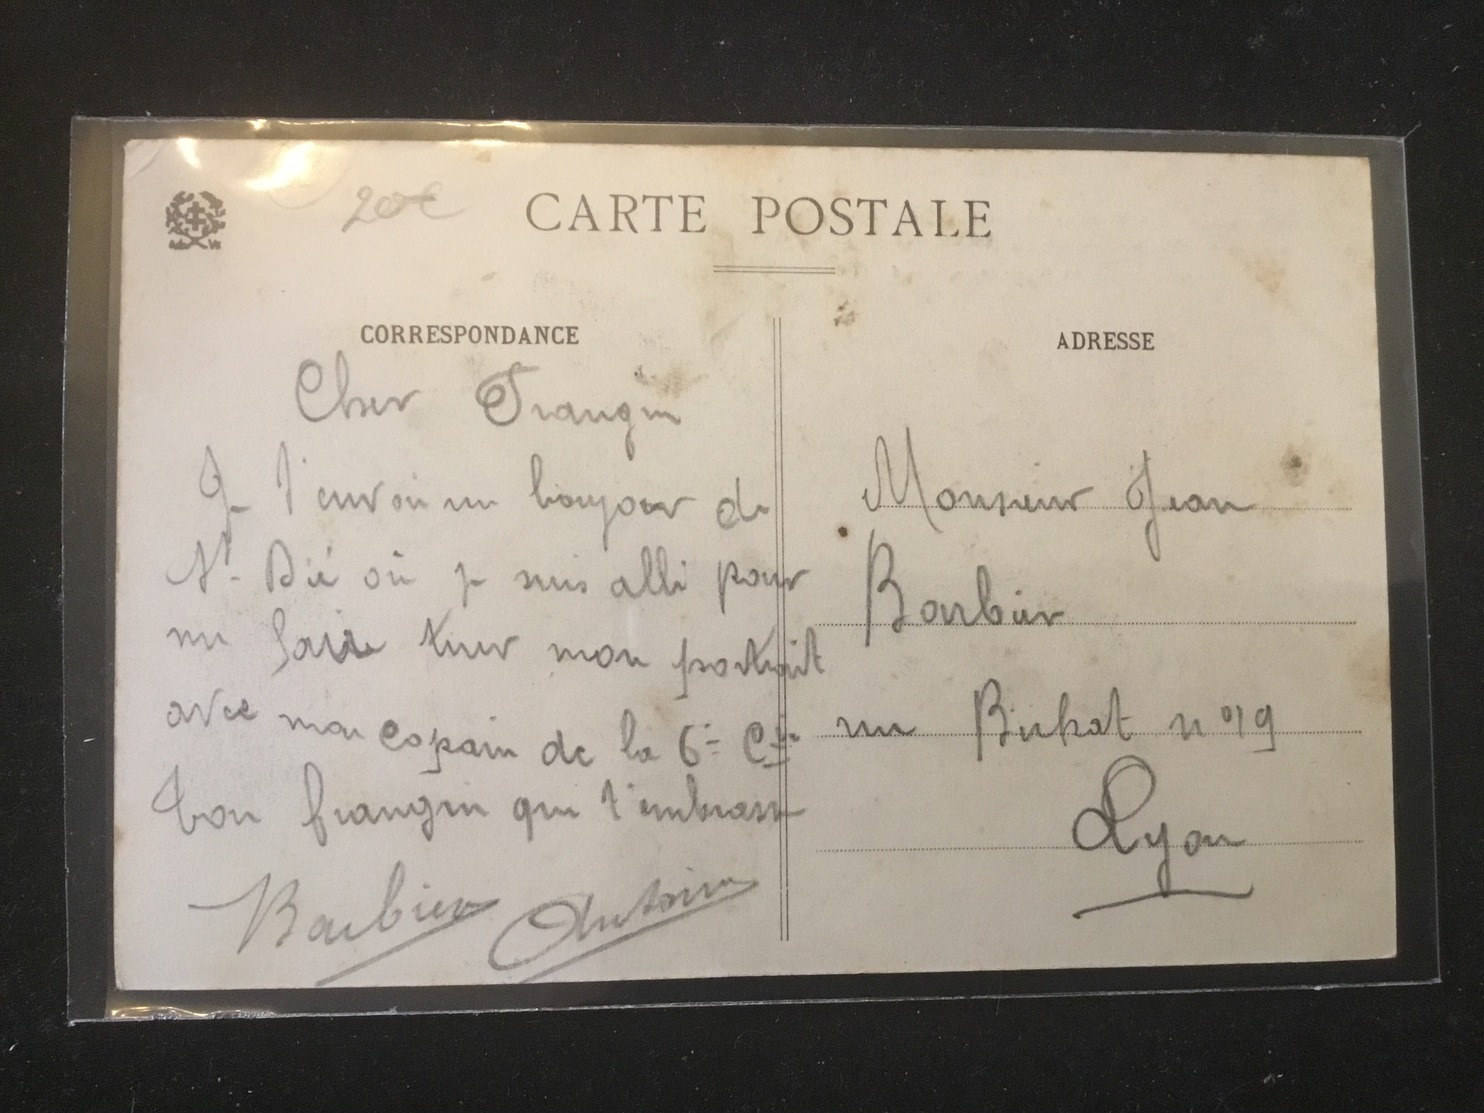 20€
CARTE POSTALE
CORRESPONDANCE
Cher Frangin
Je t'envoie un bonjour de
St. Dié où je suis allé pour
me faire tirer mon portrait
avec mon copain de la 6e Cie
Ton frangin qui t'embrasse
Barbier Antoine
ADRESSE
Monsieur Jean
Barbier
rue Bichat n° 19
Lyon